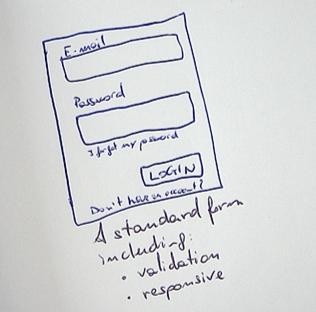 E-mail
Password
I forgot my password
LOGIN
Don't have an account?
A standard form
including:
• validation
• responsive